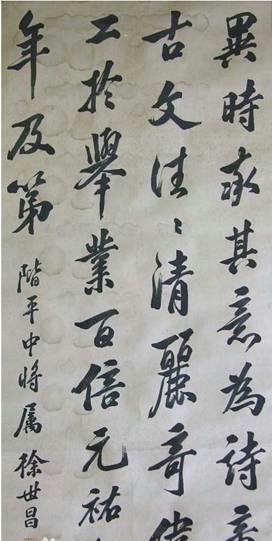 異時求其意為詩
古文往〻清麗奇
工於舉業百倍元祐
年及第
階平中將屬 徐世昌